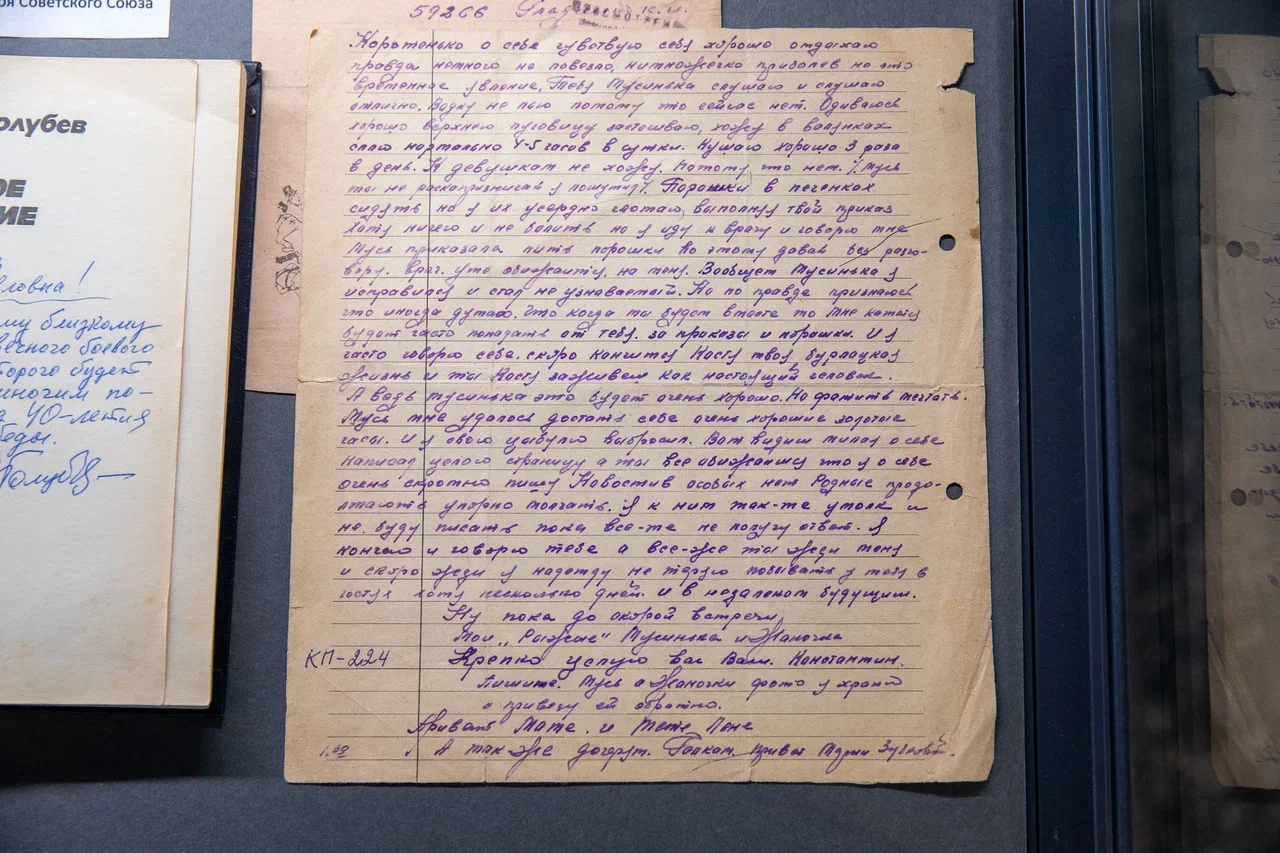 ря Советского Союза
59266
ПРОСМОТРЕНО
олубев
ОЕ
ИЕ
ловна!
му близкому
вечного боевого
торого будет
многим по-
а 40-летия
беды.
Голубев
Коротенько о себе чувствую себя хорошо отдыхаю
правда немного не повезло, нимножечко приболев но это
временное явление, Тебя Мусинька слушаю и слушаю
отлично. Водку не пью потому что сейчас нет. Одиваюсь
хорошо верхнею пуговицу застешваю, хожу в валинках
сплю нормально 4-5 часов в сутки. Кушаю хорошо 3 раза
в день. К девушкам не хожу. Потому что нет. /Мусь
ты не раскапризничай я пошутил/. Порошки в печенках
сидять но я их усердно глотаю, выполняя твой приказ
Хотя ничего и не болить но я иду к врачу и говорю мне
Мусь приказала пить порошки по этому давай без разго-
вору. врач уже обижаится, на меня. Вообщем Мусинька я
исправился и стал не узнаваемый. Но по правде признаюсь
что иногда думаю. Что когда мы будем вместе то мне
будет часто попадать от тебя. за приказа и порошки. И я
часто говорю себе. скоро кончится Костя твоя бурлацкая
жизнь и ты Костя заживем как настоящий человек.
А ведь мусинька это будет очень хорошо. Но фатить мечтать.
Мусь мне удалось достать себе очень хорошие золотые
часы. И я свого цыбулю выбросил. Вот видиш милая о себе
написал целого страницу а ты все обижаишся что я о себе
очень скромно пишу Новостив особых нет Родные продо-
лжають упорно молчать. Я к ним так-те умолк и
не буду писать пока все-те не получу ответ. Я
кончаю и говорю тебе а все-же ты жди меня
и скоро жди я надежду не теряю побывать у тебя в
гостях хотя несколько дней. И в недалеком будущим.
Ну пока до скорой встречи
Мои „Рыжие" Мусинька и Жаночка
КП-224
Крепко целую вас Ваш. Константин.
Пишите. Мусь а Жаночки фото я храню
и привезу ей обратно.
Привет Маме. и Тете Лене
А так же
привет Марии